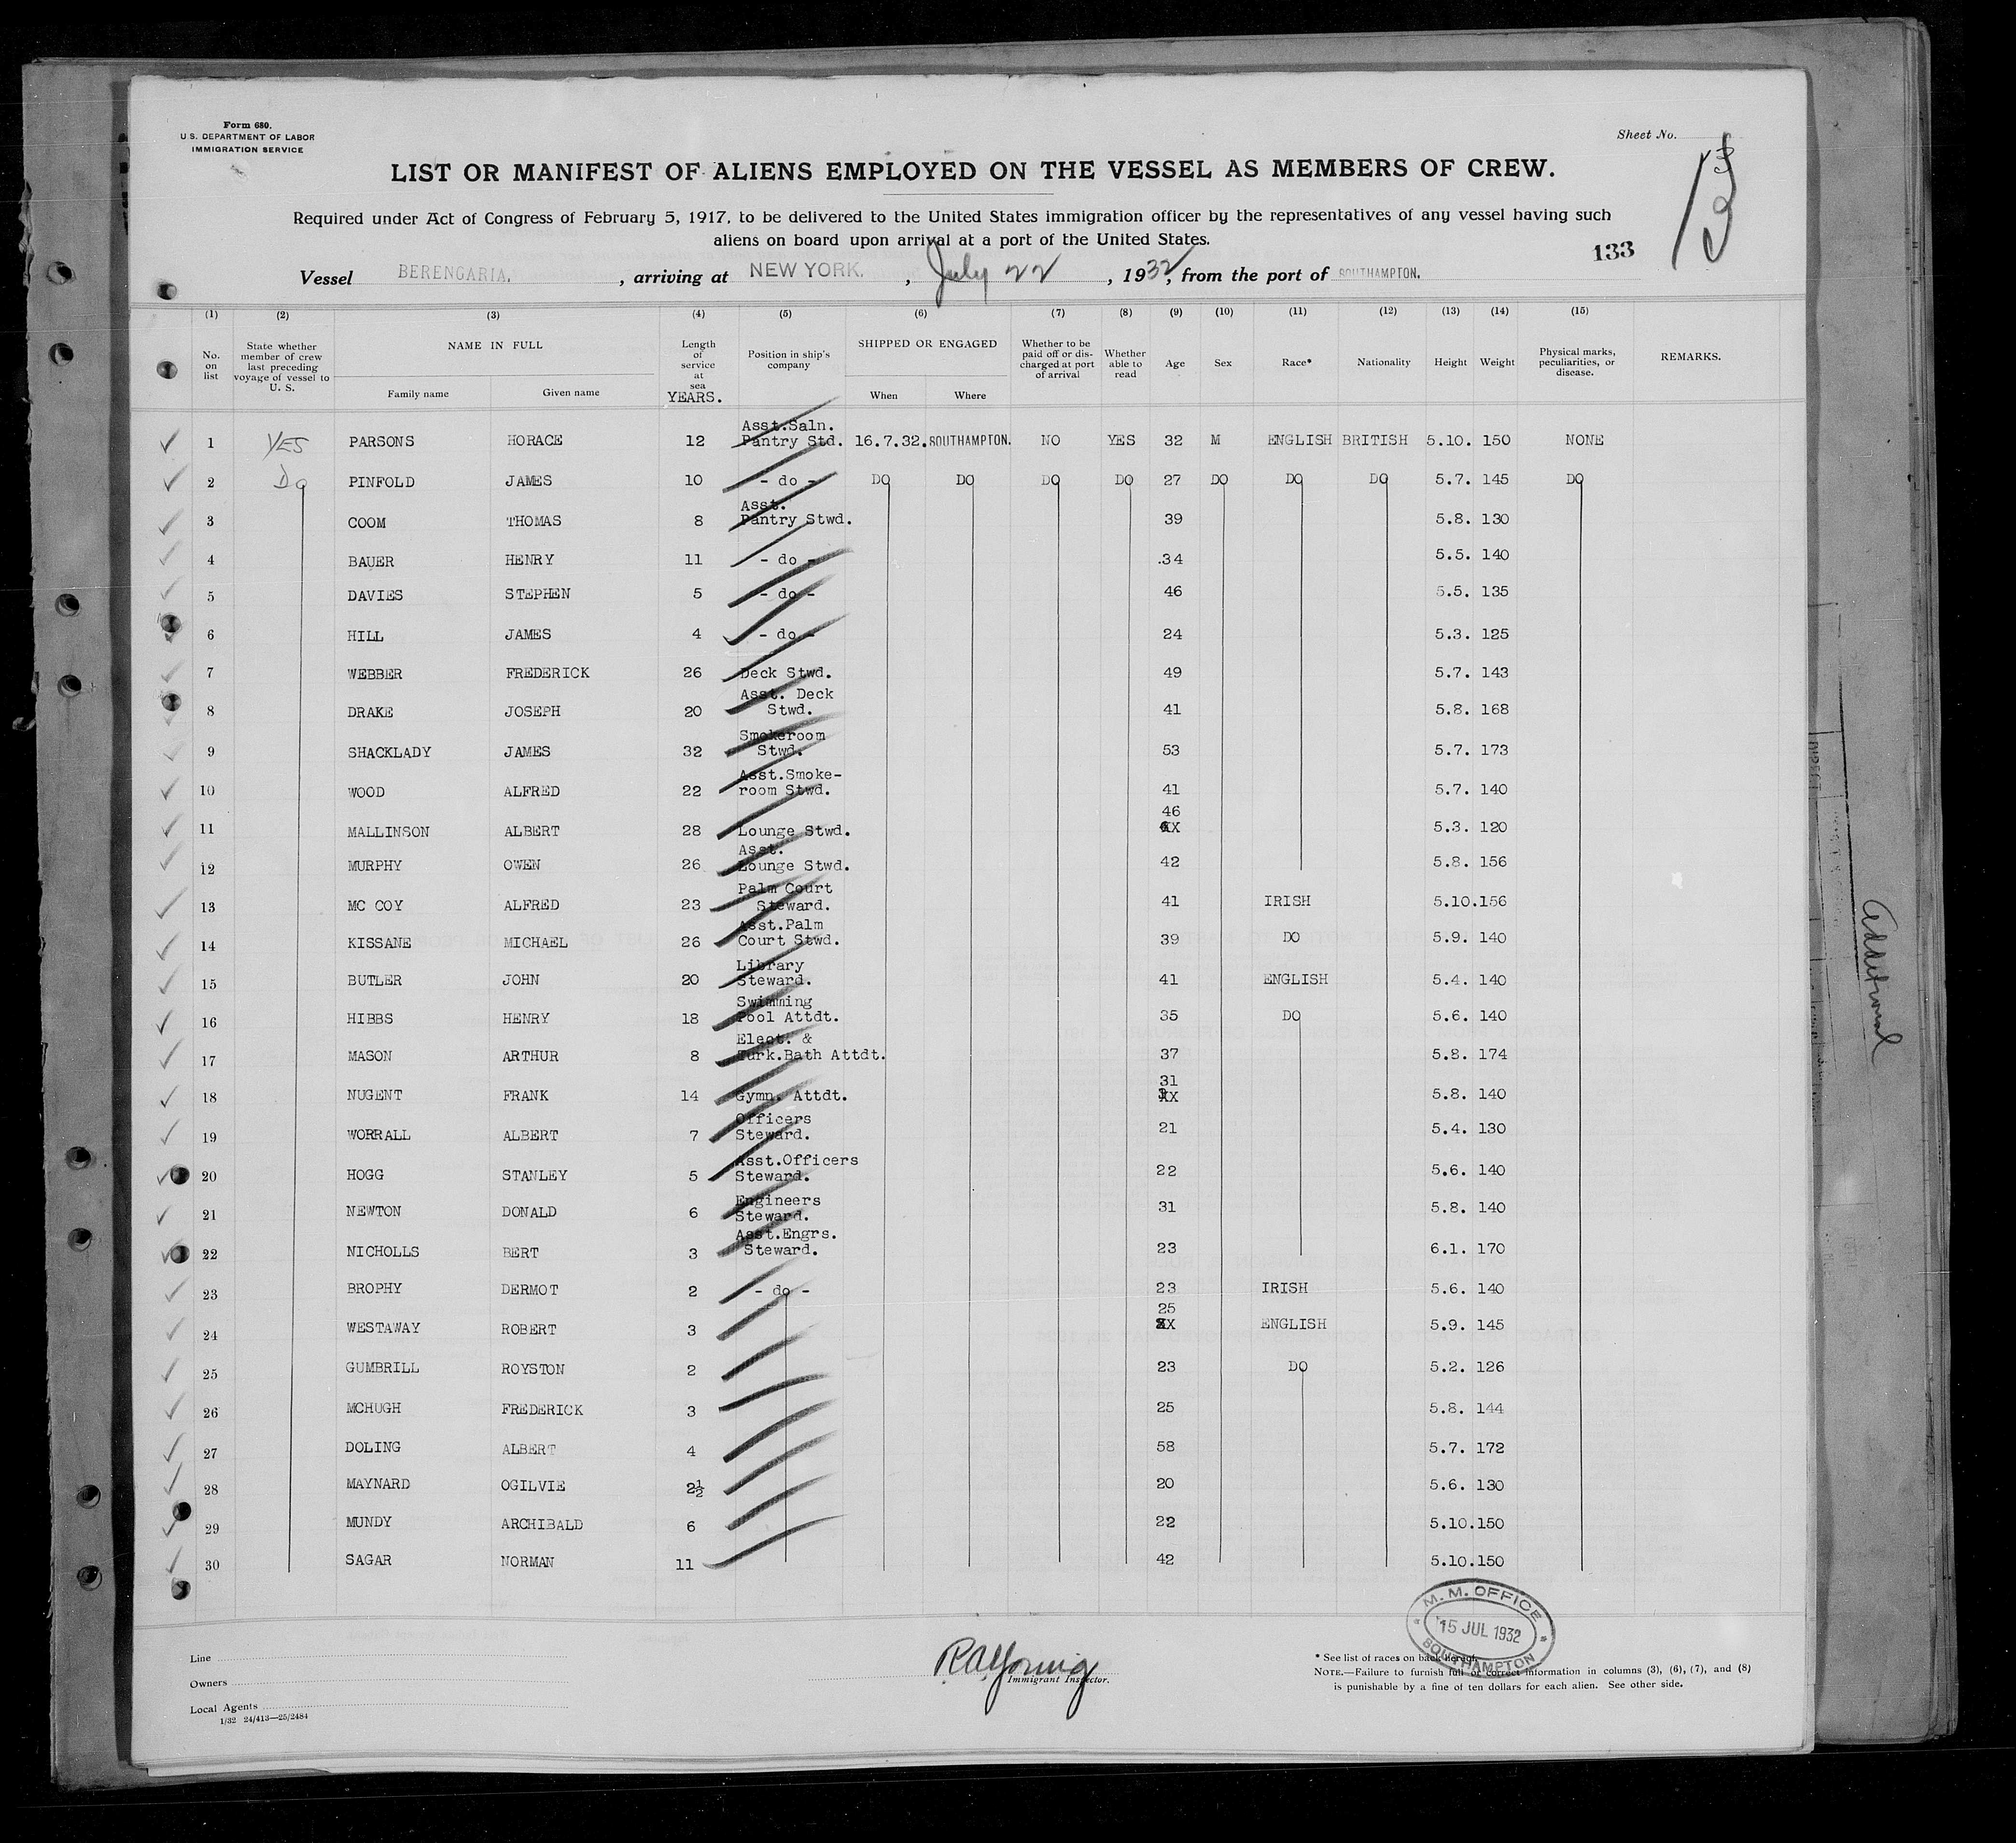 Form 680.
U.S. DEPARTMENT OF LABOR
IMMIGRATION SERVICE
Sheet No.
13
LIST OR MANIFEST OF ALIENS EMPLOYED ON THE VESSEL AS MEMBERS OF CREW.
Required under Act of Congress of February 5, 1917, to be delivered to the United States immigration officer by the representatives of any vessel having such
aliens on board upon arrival at a port of the United States.
133
Vessel BERENGARIA. , arriving at NEW YORK. , July 22 , 1932, from the port of SOUTHAMPTON.
(1) (2) (3) (4) (5) (6) (7) (8) (9) (10) (11) (12) (13) (14) (15)
No. on list State whether member of crew last preceding voyage of vessel to U. S. NAME IN FULL Family name Given name Length of service at sea YEARS. Position in ship's company SHIPPED OR ENGAGED When Where Whether to be paid off or discharged at port of arrival Whether able to read Age Sex Race* Nationality Height Weight Physical marks, peculiarities, or disease. REMARKS.
1 YES PARSONS HORACE 12 Asst.Saln. Pantry Std. 16.7.32. SOUTHAMPTON. NO YES 32 M ENGLISH BRITISH 5.10. 150 NONE
2 Do PINFOLD JAMES 10 - do - DO DO DO DO 27 DO DO DO 5.7. 145 DO
3 COOM THOMAS 8 Asst. Pantry Stwd. 39 5.8. 130
4 BAUER HENRY 11 - do - .34 5.5. 140
5 DAVIES STEPHEN 5 - do - 46 5.5. 135
6 HILL JAMES 4 - do - 24 5.3. 125
7 WEBBER FREDERICK 26 Deck Stwd. 49 5.7. 143
8 DRAKE JOSEPH 20 Asst. Deck Stwd. 41 5.8. 168
9 SHACKLADY JAMES 32 Smokeroom Stwd. 53 5.7. 173
10 WOOD ALFRED 22 Asst.Smoke-room Stwd. 41 5.7. 140
11 MALLINSON ALBERT 28 Lounge Stwd. 46 XX 5.3. 120
12 MURPHY OWEN 26 Asst. Lounge Stwd. 42 5.8. 156
13 MC COY ALFRED 23 Palm Court Steward. 41 IRISH 5.10.156
14 KISSANE MICHAEL 26 Asst.Palm Court Stwd. 39 DO 5.9. 140
15 BUTLER JOHN 20 Library Steward. 41 ENGLISH 5.4. 140
16 HIBBS HENRY 18 Swimming Pool Attdt. 35 DO 5.6. 140
17 MASON ARTHUR 8 Elect. & Turk.Bath Attdt. 37 5.8. 174
18 NUGENT FRANK 14 Gymn. Attdt. 31 XX 5.8. 140
19 WORRALL ALBERT 7 Officers Steward. 21 5.4. 130
20 HOGG STANLEY 5 Asst.Officers Steward. 22 5.6. 140
21 NEWTON DONALD 6 Engineers Steward. 31 5.8. 140
22 NICHOLLS BERT 3 Asst.Engrs. Steward. 23 6.1. 170
23 BROPHY DERMOT 2 - do - 23 IRISH 5.6. 140
24 WESTAWAY ROBERT 3 25 XX ENGLISH 5.9. 145
25 GUMBRILL ROYSTON 2 23 DO 5.2. 126
26 MCHUGH FREDERICK 3 25 5.8. 144
27 DOLING ALBERT 4 58 5.7. 172
28 MAYNARD OGILVIE 2½ 20 5.6. 130
29 MUNDY ARCHIBALD 6 22 5.10.150
30 SAGAR NORMAN 11 42 5.10.150
M. M. OFFICE
15 JUL 1932
SOUTHAMPTON
Line
Owners
Local Agents
1/32 24/413—25/2484
R A Young
Immigrant Inspector.
* See list of races on back hereof.
NOTE.—Failure to furnish full or correct information in columns (3), (6), (7), and (8)
is punishable by a fine of ten dollars for each alien. See other side.
Additional